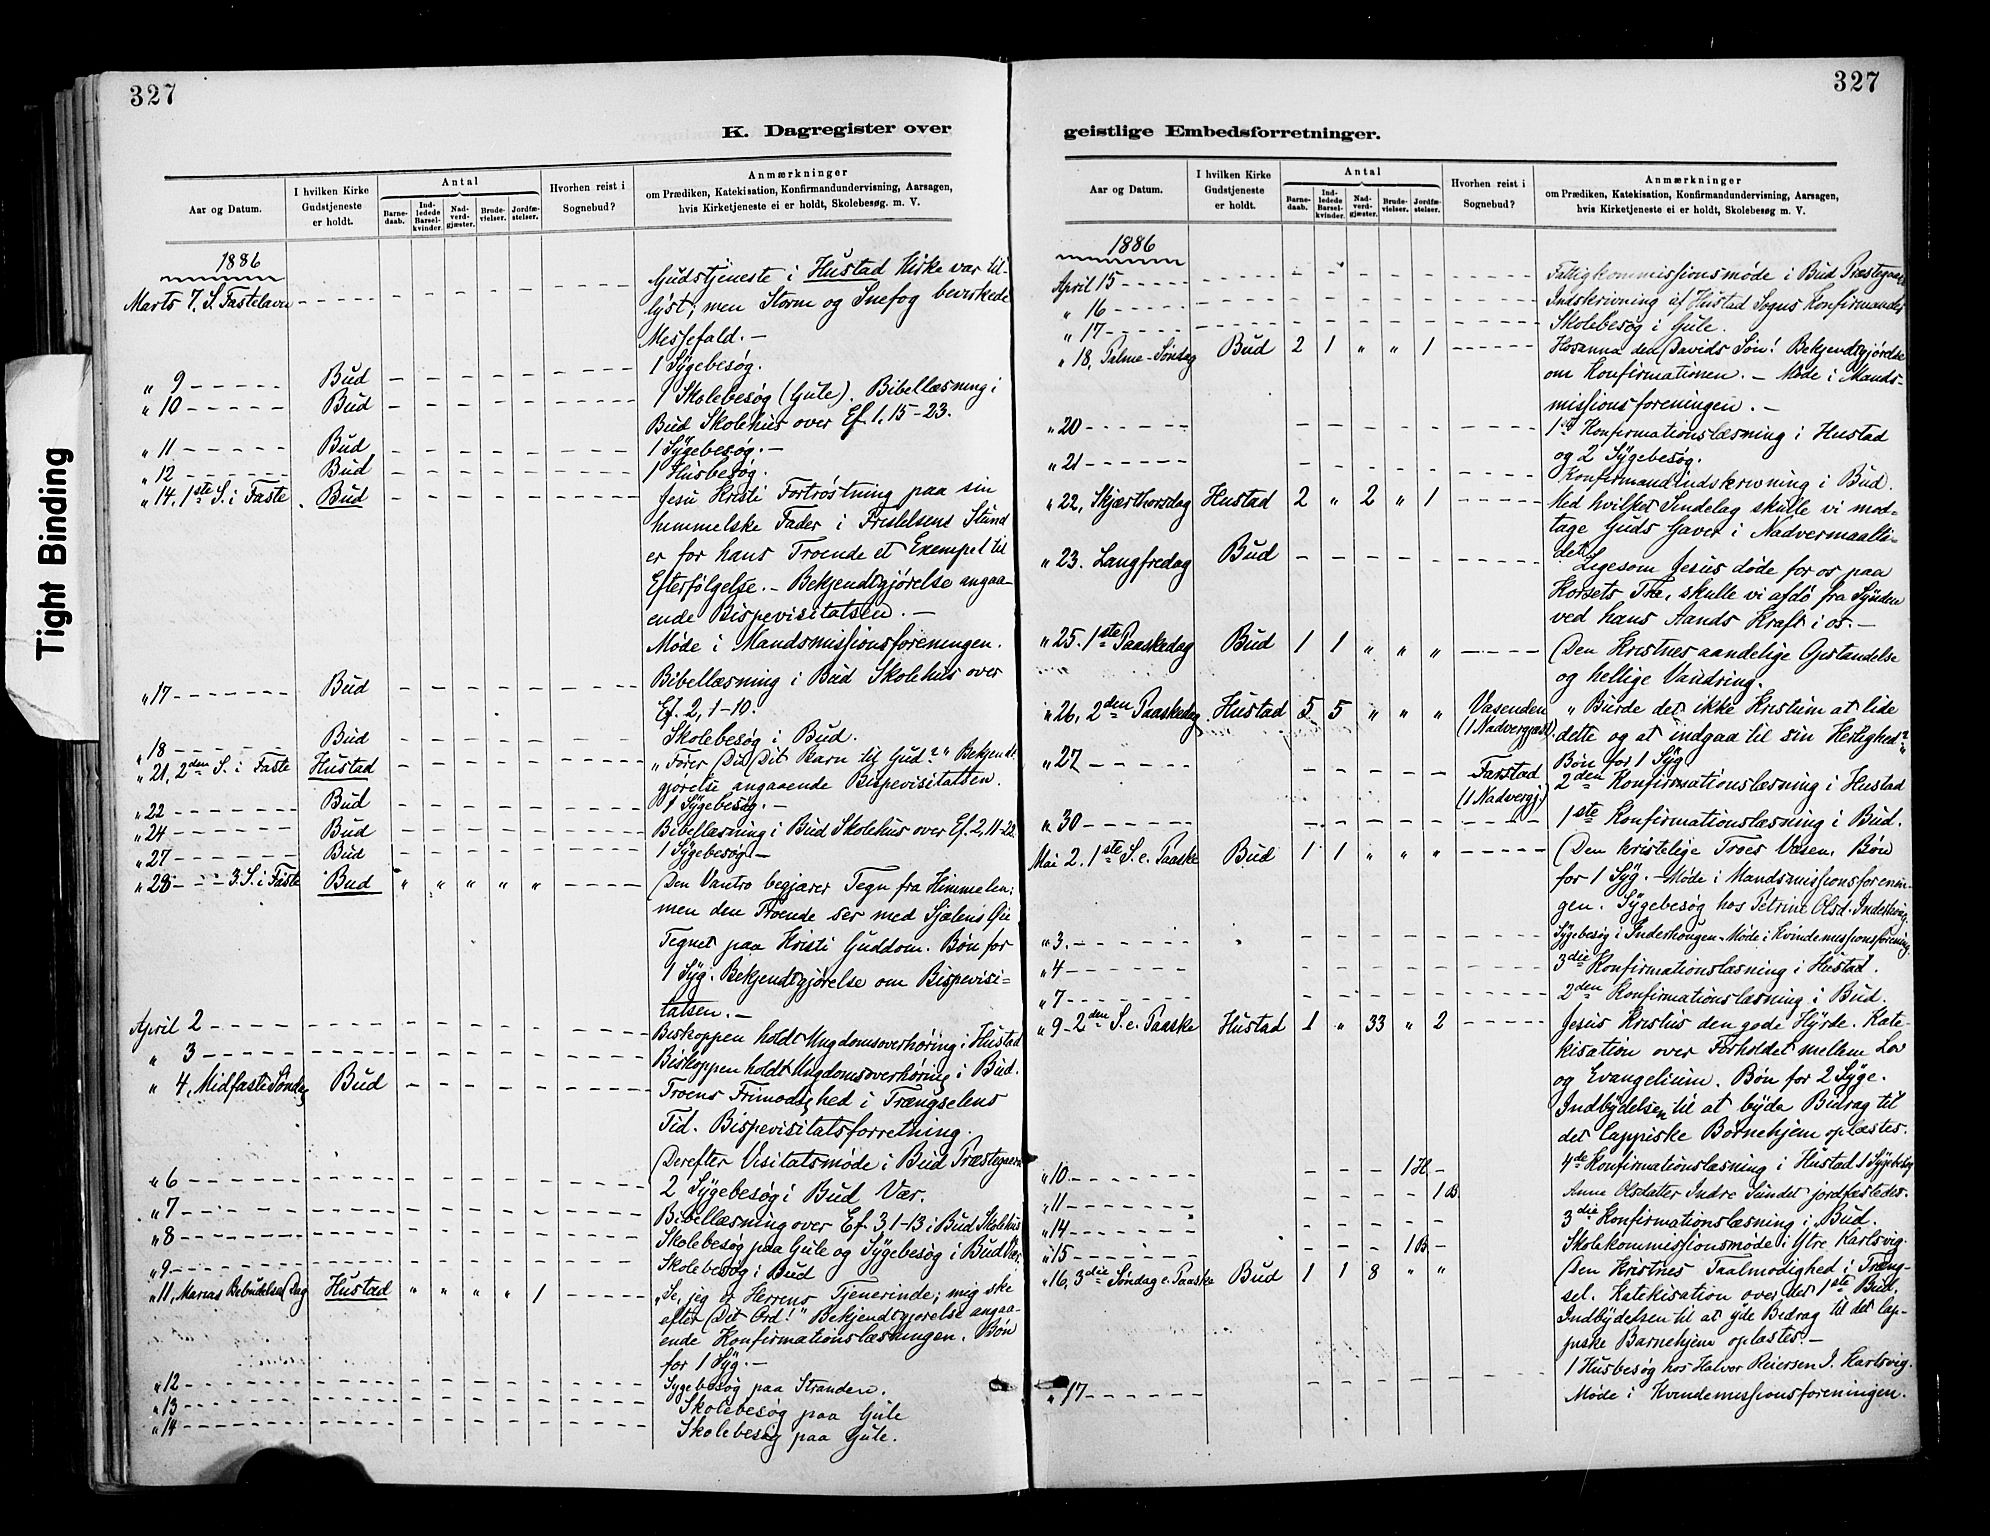 Tight Binding
327
K. Dagregister over
Aar og Datum.
I hvilken Kirke Gudstjeneste er holdt.
Antal
Barnedaab.
Indledede Barselkvinder.
Nadverdgjæster.
Brudevielser.
Jordfæstelser.
Hvorhen reist i Sognebud?
Anmærkninger
om Prædiken, Katekisation, Konfirmandundervisning, Aarsagen,
hvis Kirketjeneste ei er holdt, Skolebesøg. m. V.
1886
Marts 7, S. Fastelavn - - - - - Gudstjeneste i Hustad Kirke var til-
lyst; men Storm og Snefog bevirkede
Messefald. -
" 9 - - - - - Bud - - - - - - 1 Sygebesøg.
" 10 - - - - - Bud - - - - - - 1 Skolebesøg (Gule). Bibellæsning i
Bud Skolehus over Ef. 1, 15-23.
" 11 - - - - - Bud - - - - - - 1 Sygebesøg. -
" 12 - - - - - Bud - - - - - - 1 Husbesøg.
" 14. 1ste S. i Faste Bud - - - - - - Jesu Kristi Fortrøstning paa sin
himmelske Fader i Fristelsens Stund
er for hans Troende et Exempel til
Efterfølgelse. - Bekjendtgjørelse angaa-
ende Bispevisitatsen. -
Møde i Mandsmissionsforeningen.
" 17 - - - - - Bud - - - - - - Bibellæsning i Bud Skolehus over
Ef. 2, 1-10.
" 18 - - - - - Bud - - - - - - Skolebesøg i Bud.
" 21, 2den S. i Faste Hustad - - - - - - "Fører Du Dit Barn til Gud?" Bekjendt-
gjørelse angaaende Bispevisitatsen.
" 22 - - - - - Bud - - - - - - 1 Sygebesøg. -
" 24 - - - - - Bud - - - - - - Bibellæsning i Bud Skolehus over Ef. 2, 11-22.
" 27 - - - - - Bud - - - - - - 1 Sygebesøg -
" 28 - - 3. S. i Faste Bud " " " " " - - - - Den Vantro begjærer Tegn fra Himmelen;
men den Troende ser med Sjælens Øie
Tegnet paa Kristi Guddom. Bøn for
1 Syg. Bekjendtgjørelse om Bispevisi-
tatsen. -
April 2 - - - - - Biskoppen holdt Ungdomsoverhøring i Hustad
" 3 - - - - - Biskoppen holdt Ungdomsoverhøring i Bud.
" 4, Midfaste Søndag Bud - - - - - - Troens Frimodighed i Trængselens
Tid. Bispevisitatsforretning.
Derefter Visitatsmøde i Bud Præstegaard
" 6 - - - - - 2 Sygebesøg i Bud Vær.
" 7 - - - - - Bibellæsning over Ef. 3, 1-13 i Bud Skolehus
" 8 - - - - - Skolebesøg paa Gule og Sygebesøg i Bud Vær.
" 9 - - - - - Skolebesøg i Bud
" 11, Marias Bebudelses Dag Hustad " " " " 1 - - - - "Se, jeg er Herrens Tjenerinde; mig ske
efter Dit Ord!" Bekjendtgjørelse angaa-
ende Konfirmationslæsningen. Bøn
for 1 Syg. -
" 12 - - - - - Sygebesøg paa Stranden.
" 13 - - - - - Skolebesøg paa Gule
" 14 - - - - - Skolebesøg paa Gule.
327
geistlige Embedsforretninger.
Aar og Datum.
I hvilken Kirke Gudstjeneste er holdt.
Antal
Barnedaab.
Indledede Barselkvinder.
Nadverdgjæster.
Brudevielser.
Jordfæstelser.
Hvorhen reist i Sognebud?
Anmærkninger
om Prædiken, Katekisation, Konfirmandundervisning, Aarsagen,
hvis Kirketjeneste ei er holdt, Skolebesøg m. V.
1886
April 15 - - - - - Fattigkommissionsmøde i Bud Præstegaard
" 16 - - - - - Indskrivning af Hustad Sogns Konfirmander
" 17 - - - - - Skolebesøg i Gule.
" 18, Palme-Søndag Bud 2 1 " " 1 - - - - Hosanna den Davids Søn! Bekjendtgjørelse
om Konfirmationen. - Møde i Mands-
missionsforeningen. -
" 20 - - - - - 1ste Konfirmationslæsning i Hustad
og 2 Sygebesøg.
" 21 - - - - - Konfirmandindskrivning i Bud.
" 22, Skjærthorsdag Hustad 2 " 2 " 1 - - - - Med hvilket Sindelag skulle vi mod-
tage Guds Gaver i Nadvermaalti-
det.
" 23. Langfredag Bud - - - - - Ligesom Jesus døde for os paa
Korsets Træ, skulle vi afdø fra Synden
ved hans Aands Kraft i os. -
" 25. 1ste Paaskedag Bud 1 1 " " " - - - - Den Kristnes aandelige Opstandelse
og hellige Vandring.
" 26, 2den Paaskedag Hustad 5 5 " " " Vasenden "Burde det ikke Kristum at lide
(1 Nadvergjæst) dette og at indgaa til sin Herlighed?"
Bøn for 1 Syg
" 27 - - - - - Farstad 2den Konfirmationslæsning i Hustad
(1 Nadvergj.)
" 30 - - - - - 1ste Konfirmationslæsning i Bud.
Mai 2. 1ste S. e. Paaske Bud 1 1 " " " - - - - Den kristelige Troes Væsen. Bøn
for 1 Syg. - Møde i Mandsmissionsforenin-
gen. Sygebesøg hos Petrine Olsd. Inderhaug.
" 3. - - - - - Sygebesøg i Inderhaugen - Møde i Kvindemissionsforening
" 4 - - - - - 3die Konfirmationslæsning i Hustad.
" 7 - - - - - 2den Konfirmationslæsning i Bud.
" 9 - 2den S. e. Paaske Hustad 1 " 33 " 2 - - - - Jesus Kristus den gode Hyrde. Kate-
kisation over Forholdet mellem Lov
og Evangelium. Bøn for 2 Syge.
Indbydelsen til at byde Bidrag til
det lappiske Børnehjem oplæstes.
" 10 - - - - - 1H - 4de Konfirmationslæsning i Hustad 1 Sygebesøg
" 11 - - - - - 1B. Anne Olsdatter Indre Sundet jordfæstedes.
" 14 - - - - - 3die Konfirmationslæsning i Bud.
" 15 - - - - - 1B - Skolekommissionsmøde i Ytre Karlsvig.
" 16, 3die Søndag e. Paaske Bud 1 1 8 " " Den Kristnes Taalmodighed i Træng-
sel. Katekisation over det 1ste Bud.
Indbydelsen til at yde Bidrag til det lap-
piske Barnehjem oplæstes. -
1 Husbesøg hos Halvor Reiersen I. Karlsvig.
" 17 - - - - - Møde i Kvindemissionsforeningen.